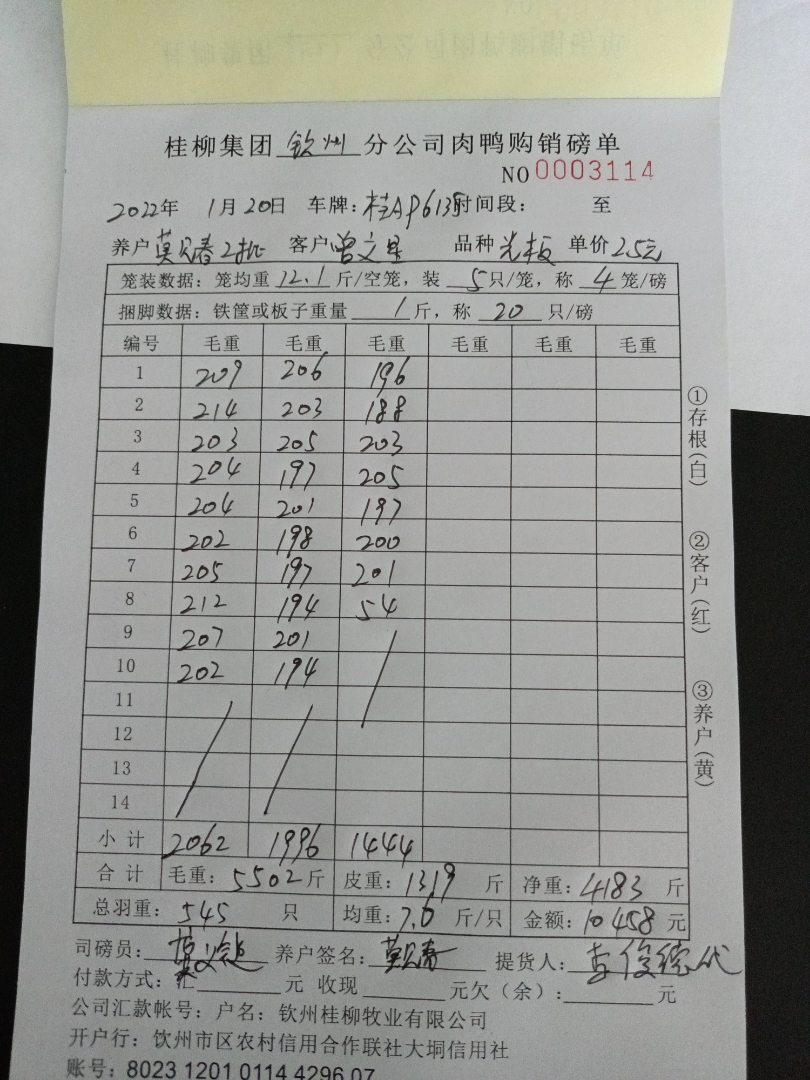 桂柳集团 钦州 分公司肉鸭购销磅单
NO 0003114
2022年 1月20日 车牌：桂AP6135 时间段： 至
养户 莫 春2批 客户 曾文星 品种 光板 单价 2.5元
笼装数据：笼均重 12.1 斤/空笼，装 5 只/笼，称 4 笼/磅
捆脚数据：铁筐或板子重量 1 斤，称 20 只/磅
编号 毛重 毛重 毛重 毛重 毛重 毛重
1 209 206 196
2 214 203 188
3 203 205 203
4 204 197 205
5 204 201 197
6 202 198 200
7 205 197 201
8 212 194 54
9 207 201 /
10 202 194
11 / /
12
13
14
小计 2062 1996 1444
合计 毛重：5502斤 皮重：1319 斤 净重：4183 斤
总羽重：545 只 均重：7.0 斤/只 金额：10458元
司磅员： 养户签名：莫 春 提货人：李俊德代
付款方式：汇 元 收现 元欠（余）： 元
公司汇款帐号：户名：钦州桂柳牧业有限公司
开户行：钦州市区农村信用合作联社大垌信用社
账号：8023 1201 0114 4296 07
①存根（白）
②客户（红）
③养户（黄）